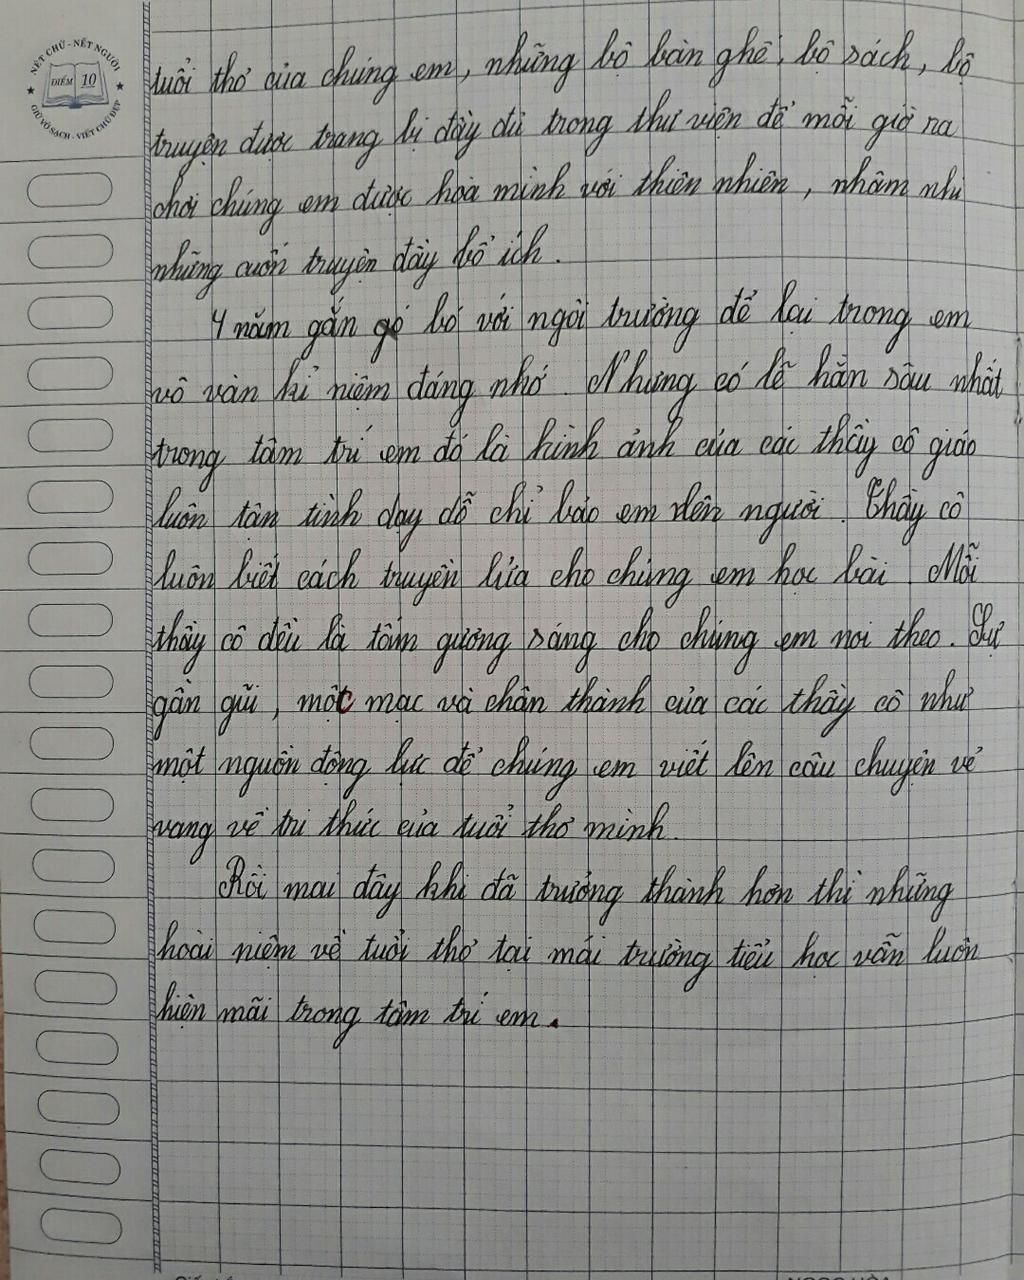 NÉT CHỮ - NẾT NGƯỜI
ĐIỂM 10
GIỮ VỞ SẠCH - VIẾT CHỮ ĐẸP
tuổi thơ của chúng em, những bộ bàn ghế, bộ sách, bộ
truyện được trang bị đầy đủ trong thư viện để mỗi giờ ra
chơi chúng em được hoà mình với thiên nhiên, nhâm nhi
những cuốn truyện đầy bổ ích.
4 năm gắn gó bó với ngôi trường để lại trong em
vô vàn kỉ niệm đáng nhớ. Nhưng có lẽ hằn sâu nhất
trong tâm trí em đó là hình ảnh của các thầy cô giáo
luôn tận tình dạy dỗ chỉ bảo em nên người. Thầy cô
luôn biết cách truyền lửa cho chúng em học bài. Mỗi
thầy cô đều là tấm gương sáng cho chúng em noi theo. Sự
gần gũi, mộc mạc và chân thành của các thầy cô như
một nguồn động lực để chúng em viết lên câu chuyện vẻ
vang về tri thức của tuổi thơ mình.
Rồi mai đây khi đã trưởng thành hơn thì những
hoài niệm về tuổi thơ tại mái trường tiểu học vẫn luôn
hiện mãi trong tâm trí em.